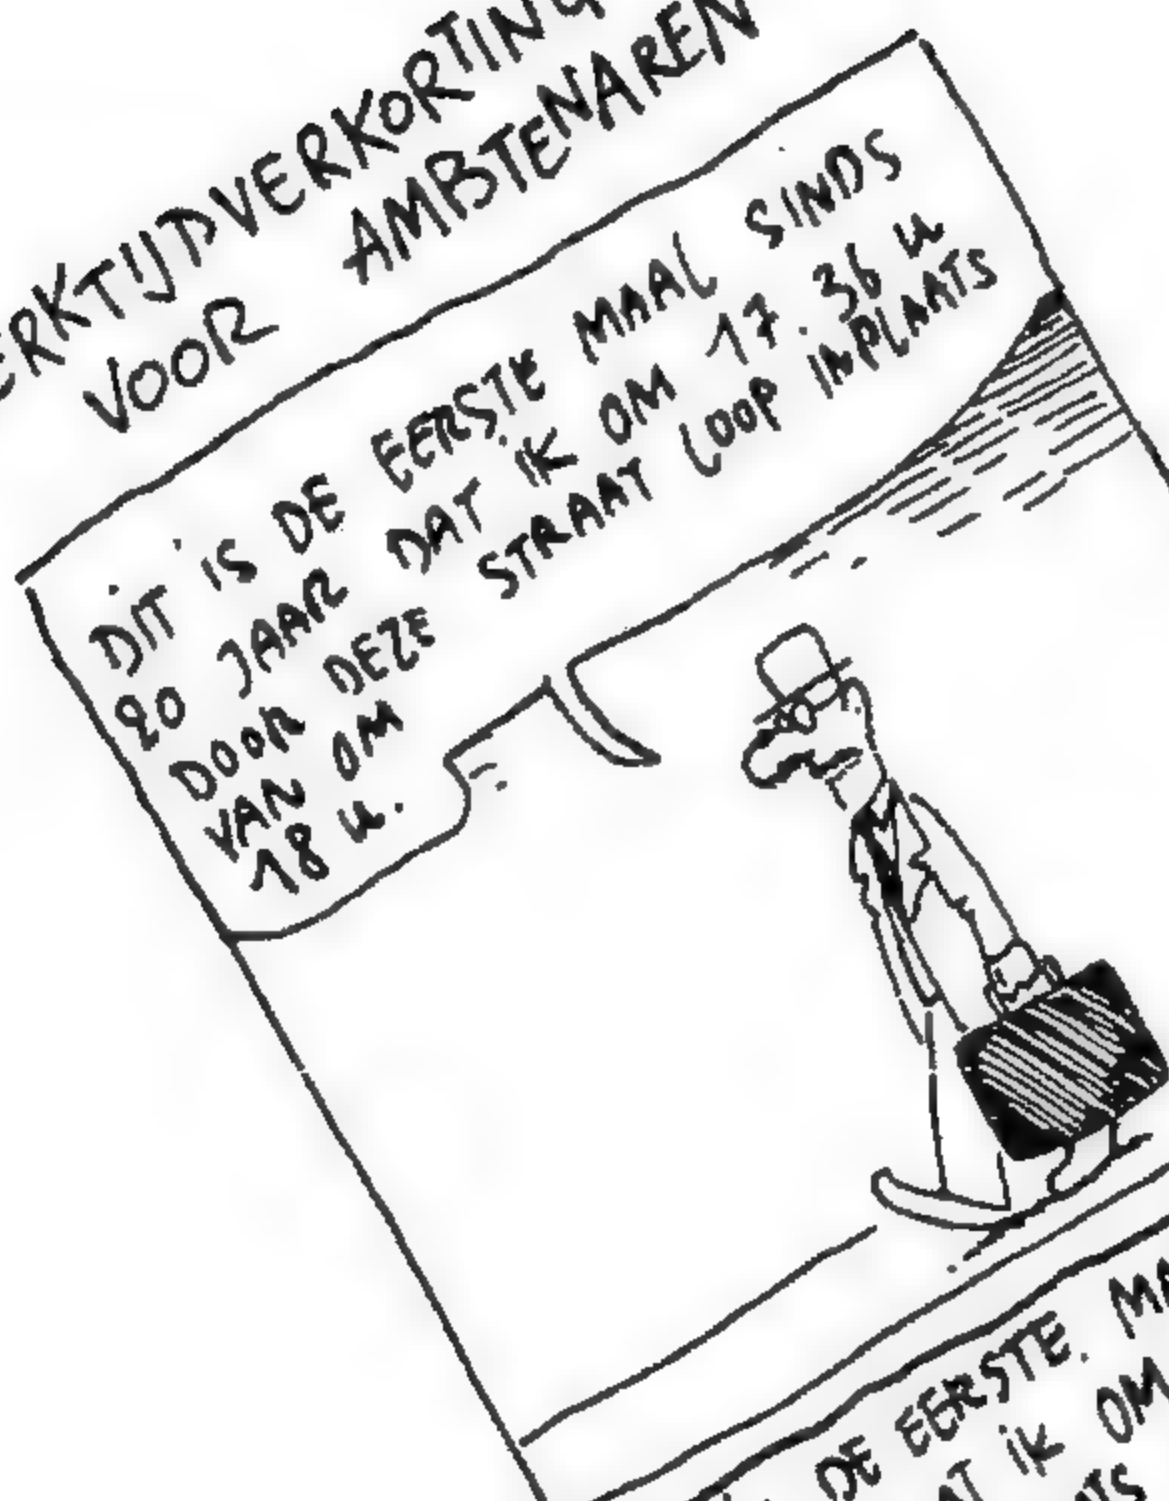 ERKTIJDVERKORTING
VOOR AMBTENAREN
DIT IS DE EERSTE MAAL SINDS
20 JAAR DAT IK OM 17.36 U
DOOR DEZE STRAAT LOOP INPLAATS
VAN OM
18 U.
DE EERSTE MA
AT IK OM